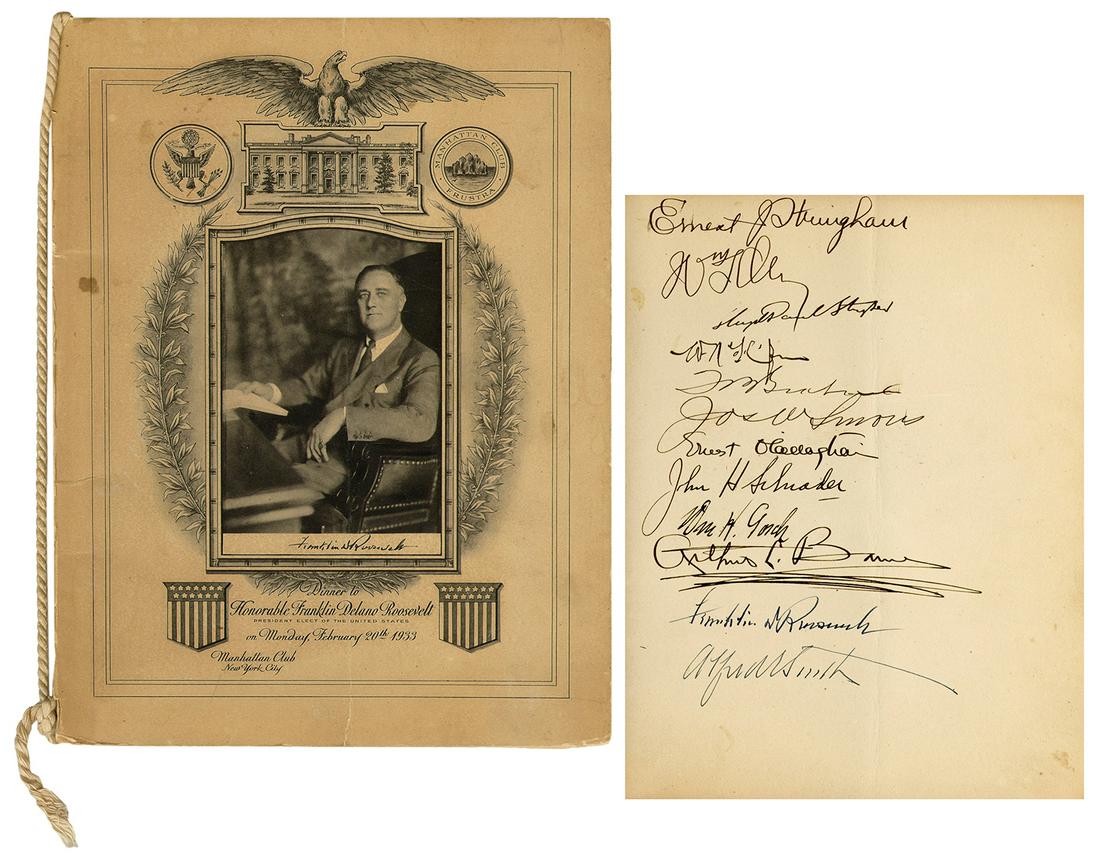 MANHATTAN CLUB
FRUSTRA
Franklin D Roosevelt
Dinner to
Honorable Franklin Delano Roosevelt
PRESIDENT ELECT OF THE UNITED STATES
on Monday, February 20th 1933
Manhattan Club
New York City
Ernest J Stringham
Wm
Lloyd Paul Stryker
Jos W Simons
Ernest O'Callaghan
John H Schrader
H.
Arthur L.
Franklin D Roosevelt
Alfred E Smith